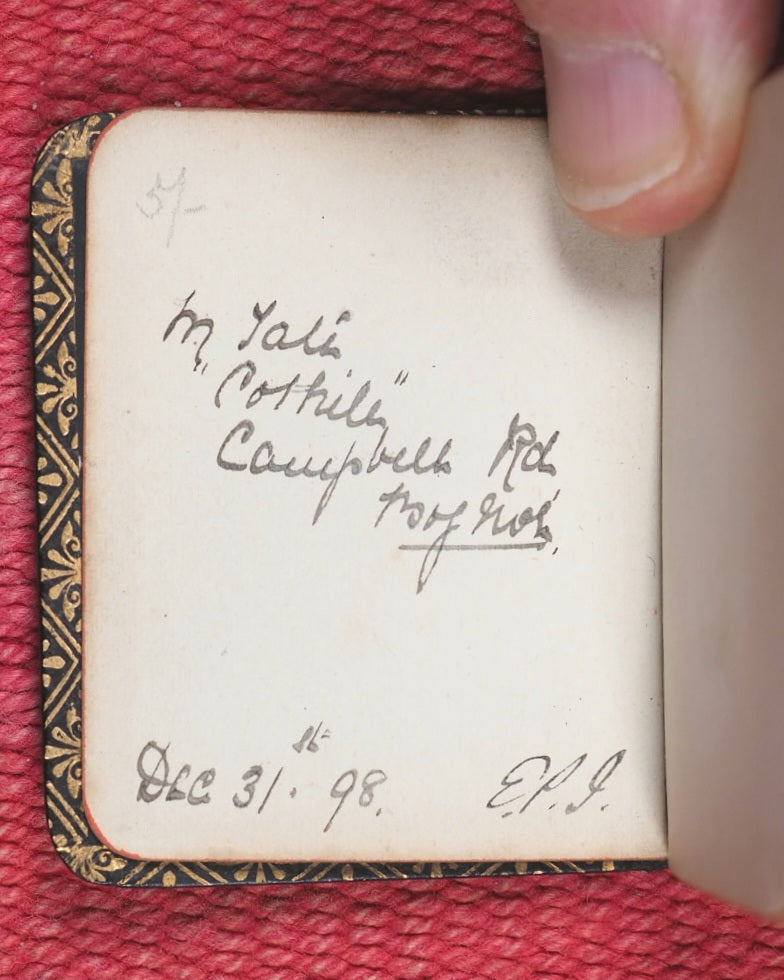 5/-
M Tate
"Cothill"
Campbell Rd
Bognor.
Dec 31st. 98. E.P.J.